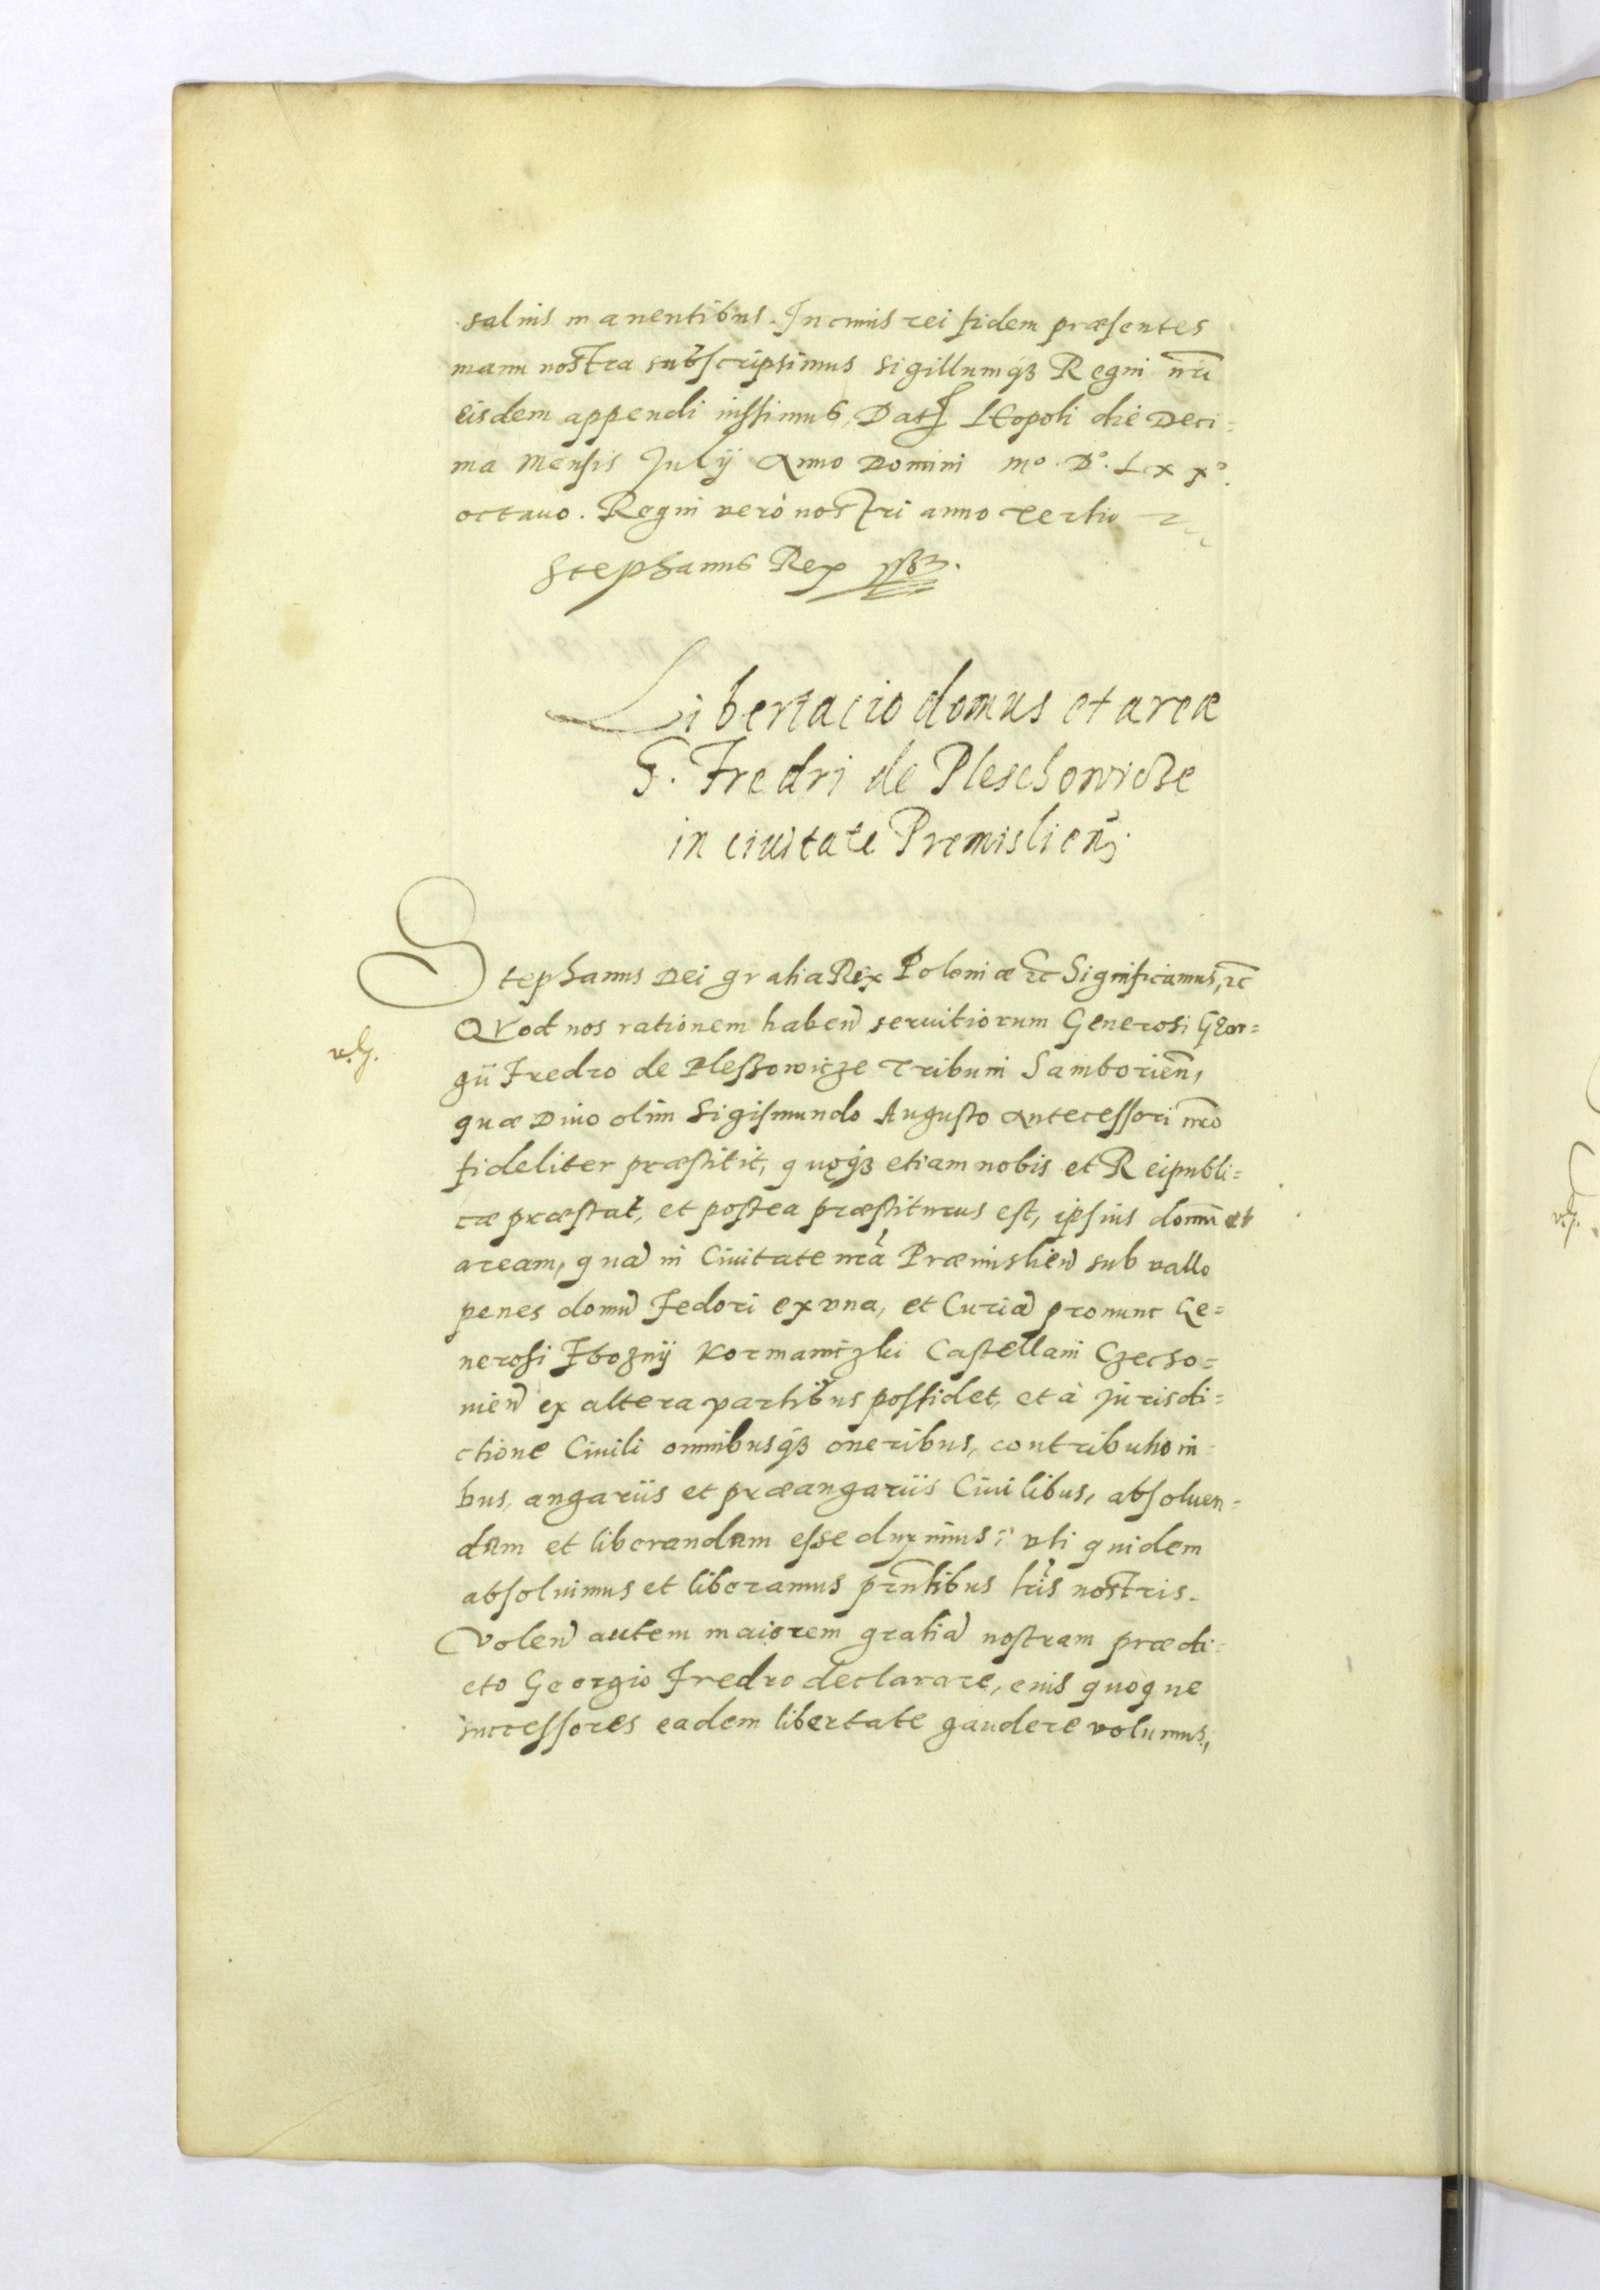 saluis manentibus. In cuius rei fidem præsentes
manu nostra subscripsimus Sigillumq́ꝫ Regni nr̃i
eisdem appendi iussimus, Dat̃ Leopoli die Deci=
ma Mensis Julÿ Anno Domini Mo. Do. Lxxo.
octauo. Regni verò nostri anno tertio
Stephanus Rex sst.
Libertacio domus et areæ
G. Fredri de Pleschowicze
in ciuitate Premislien̄
Stephanus Dei gratia Rex Poloniæ ꝛc̃ Significamus, ꝛc̃
Quod nos rationem haben̄ seruitiorum Generosi Geor=
v.G.
gii Fredro de Pleßowicze Tribuni Samborien̄,
quæ Diuo olim Sigismundo Augusto Antecessori nr̃o
fideliter præstitit, quęq́ꝫ etiam nobis et Reipubli=
cæ præstat, et postea præstiturus est, ipsius domũ et
aream, quã in Ciuitate nr̃a Præmislien̄ sub vallo
penes domũ Fedori ex vna, et Curiã pro nunc Ge=
nerosi Zboznÿ Kormaniczki Castellani Czecho=
uien̄ ex altera partibus possidet, et à jurisdi=
ctione Ciuili omnibusq́ꝫ oneribus, contributioni=
bus, angariis et præangariis Ciuilibus, absoluen=
dam et liberandam esse duximus: vti quidem
absoluimus et liberamus pñtibus lr̃is nostris.
Volen̄ autem maiorem gratiã nostram prædi=
cto Georgio Fredro declarare, eius quoque
successores eadem libertate gaudere volumus,